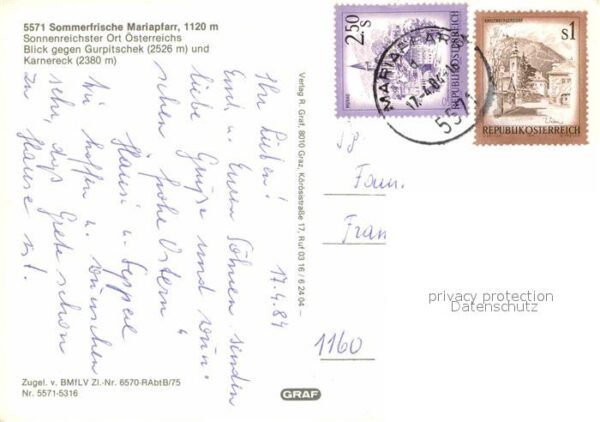 5571 Sommerfrische Mariapfarr, 1120 m
Sonnenreichster Ort Österreichs
Blick gegen Gurpitschek (2526 m) und
Karnereck (2380 m)
17.4.84
Ihr Lieben!
Euch u. Euren Söhnen senden
liebe Grüße und wün-
schen "frohe Ostern"
Hansi u. Seppel
Wir hoffen u. wünschen
sehr, daß Grete schon
zu Hause ist.
Zugel. v. BMfLV Zl.-Nr. 6570-RAbtB/75
Nr. 5571-5316
Verlag R. Graf, 8010 Graz, Körösistraße 17, Ruf 03 16 / 6 24 04 –
GRAF
2.50 S
REPUBLIK ÖSTERREICH
MARIAPFARR
5571
S1
REPUBLIK ÖSTERREICH
Fam.
Fran
1160
privacy protection
Datenschutz